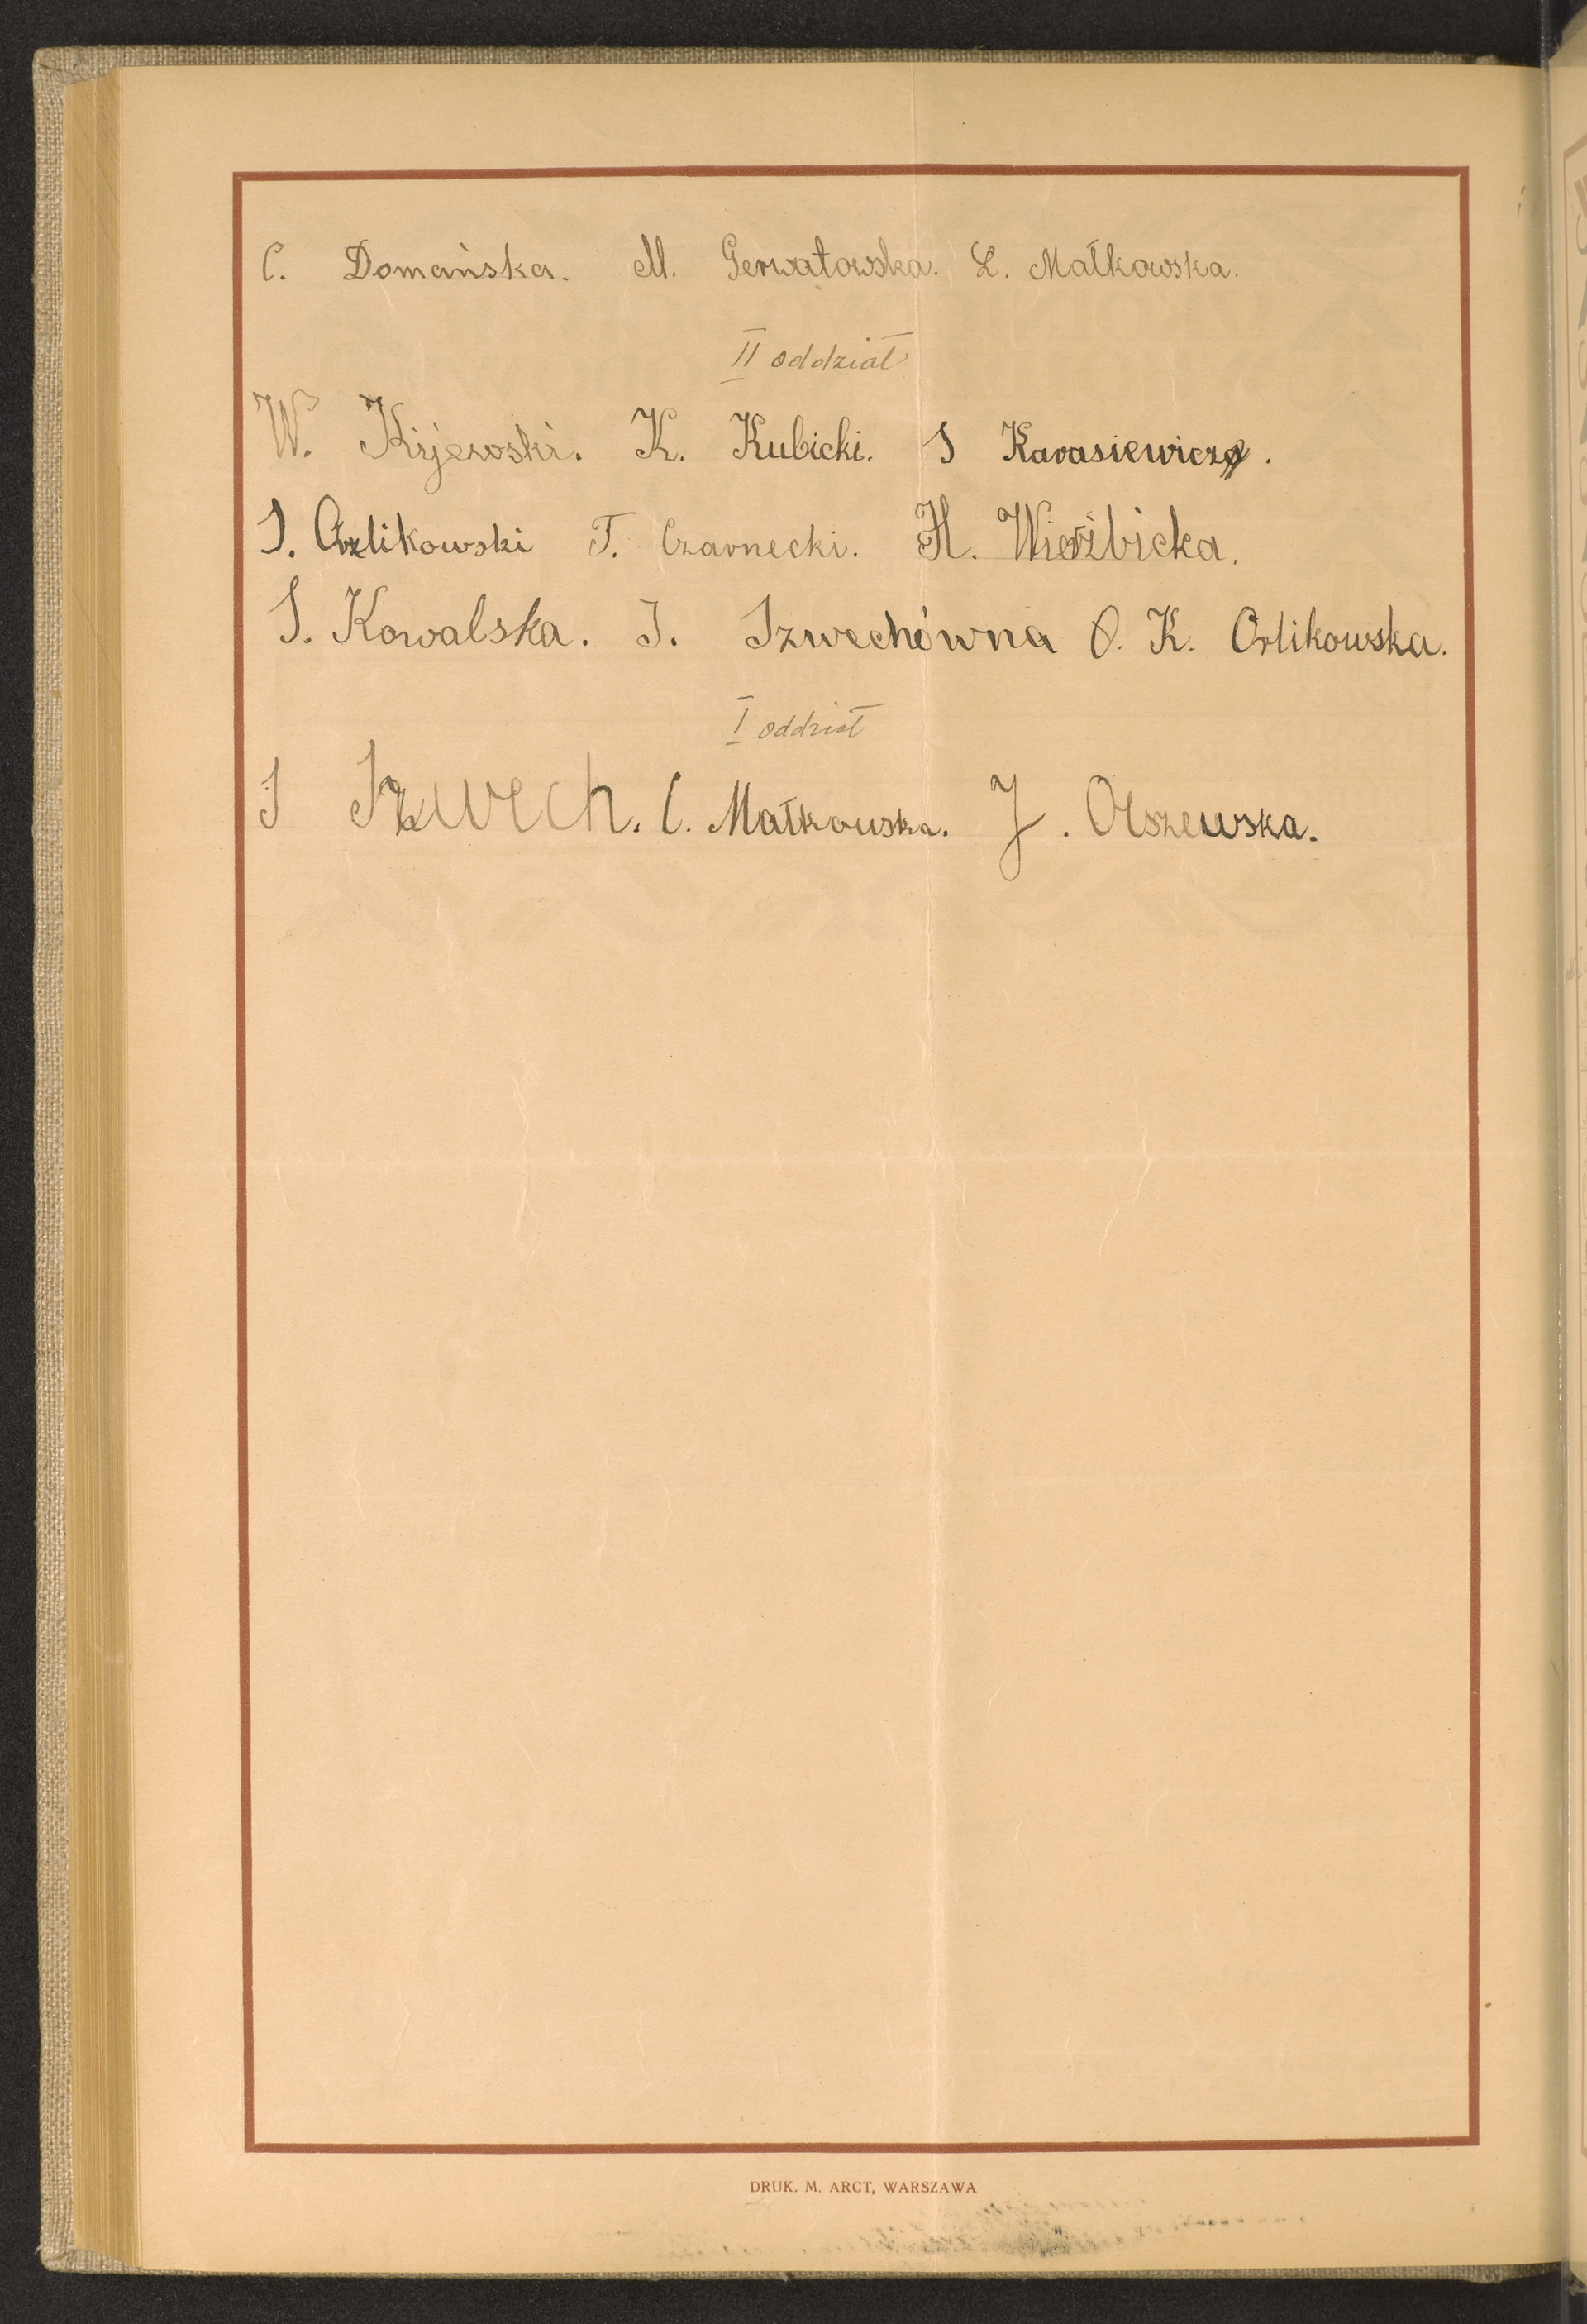 C. Domańska. M. Gerwatowska. L. Małkowska.
II oddział
W. Kijewski. K. Kubicki. S Karasiewicz.
J. Orlikowski T. Czarnecki. H. Wierzbicka.
S. Kowalska. J. Szwechówna O. K. Orlikowska.
I oddział
S Szwech. C. Małkowska. J. Olszewska.
DRUK. M. ARCT, WARSZAWA